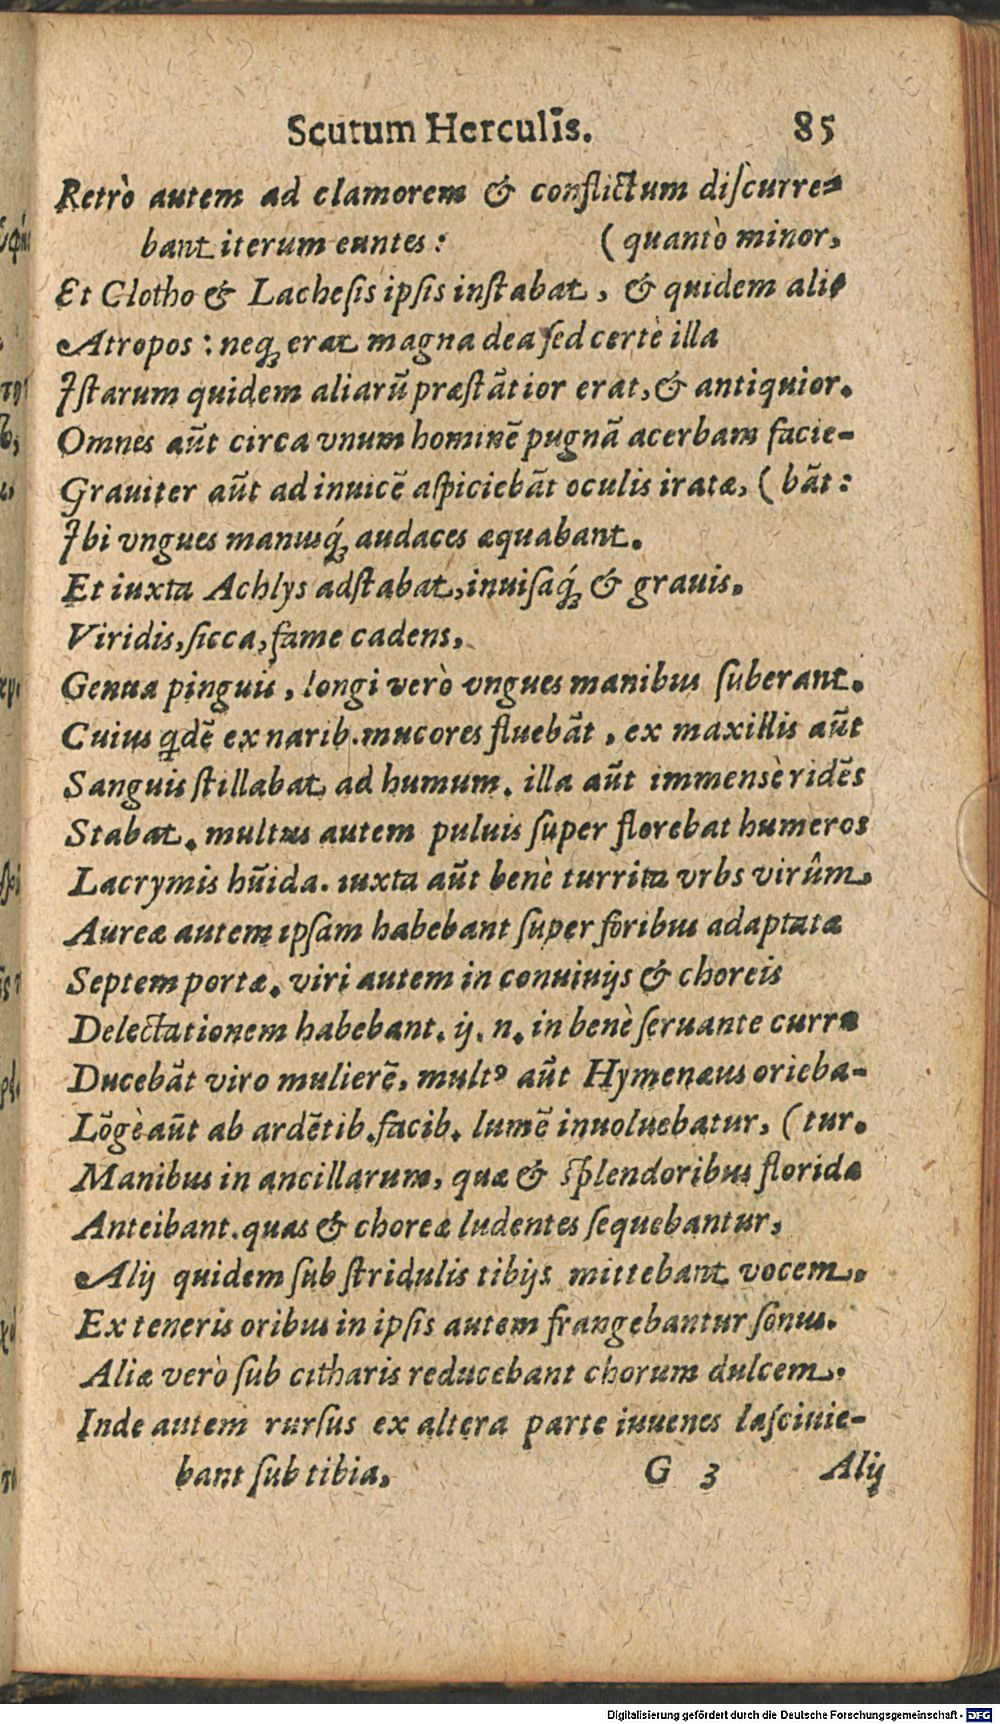 Scutum Herculis. 85
Retrò autem ad clamorem & conflictum diſcurre-
bant iterum euntes: (quantò minor,
Et Clotho & Lacheſis ipſis inſtabat, & quidem alis
Atropos: neq; erat magna dea ſed certè illa
Iſtarum quidem aliarũ præſtãtior erat, & antiquior.
Omnes aũt circa vnum hominẽ pugnã acerbam facie-
Grauiter aũt ad inuicẽ aſpiciebãt oculis iratæ, (bãt:
Ibi vngues manusq́; audaces æquabant.
Et iuxta Achlys adſtabat, inuiſaq́; & grauis.
Viridis, ſicca, fame cadens,
Genua pinguis, longi verò vngues manibus ſuberant.
Cuius qdẽ ex narib. mucores fluebãt, ex maxillis aũt
Sanguis ſtillabat ad humum. illa aũt immenſè ridẽs
Stabat. multus autem puluis ſuper florebat humeros
Lacrymis hũida. iuxta aũt benè turrita vrbs virûm,
Aureæ autem ipſam habebant ſuper foribus adaptatæ
Septem portæ. viri autem in conuiuijs & choreis
Delectationem habebant. ij. n. in benè ſeruante curru
Ducebãt viro mulierẽ, multꝰ aũt Hymenæus orieba-
Lõgè aũt ab ardẽtib. facib. lumẽ inuoluebatur, (tur.
Manibus in ancillarum, quæ & ſplendoribus floridæ
Anteibant. quas & choreæ ludentes ſequebantur,
Alij quidem ſub ſtridulis tibijs mittebant vocem.
Ex teneris oribus in ipſis autem frangebantur ſonus.
Aliæ verò ſub citharis reducebant chorum dulcem.
Inde autem rurſus ex altera parte iuuenes laſciuie-
bant ſub tibia, G 3 Alij
Digitalisierung gefördert durch die Deutsche Forschungsgemeinschaft - DFG